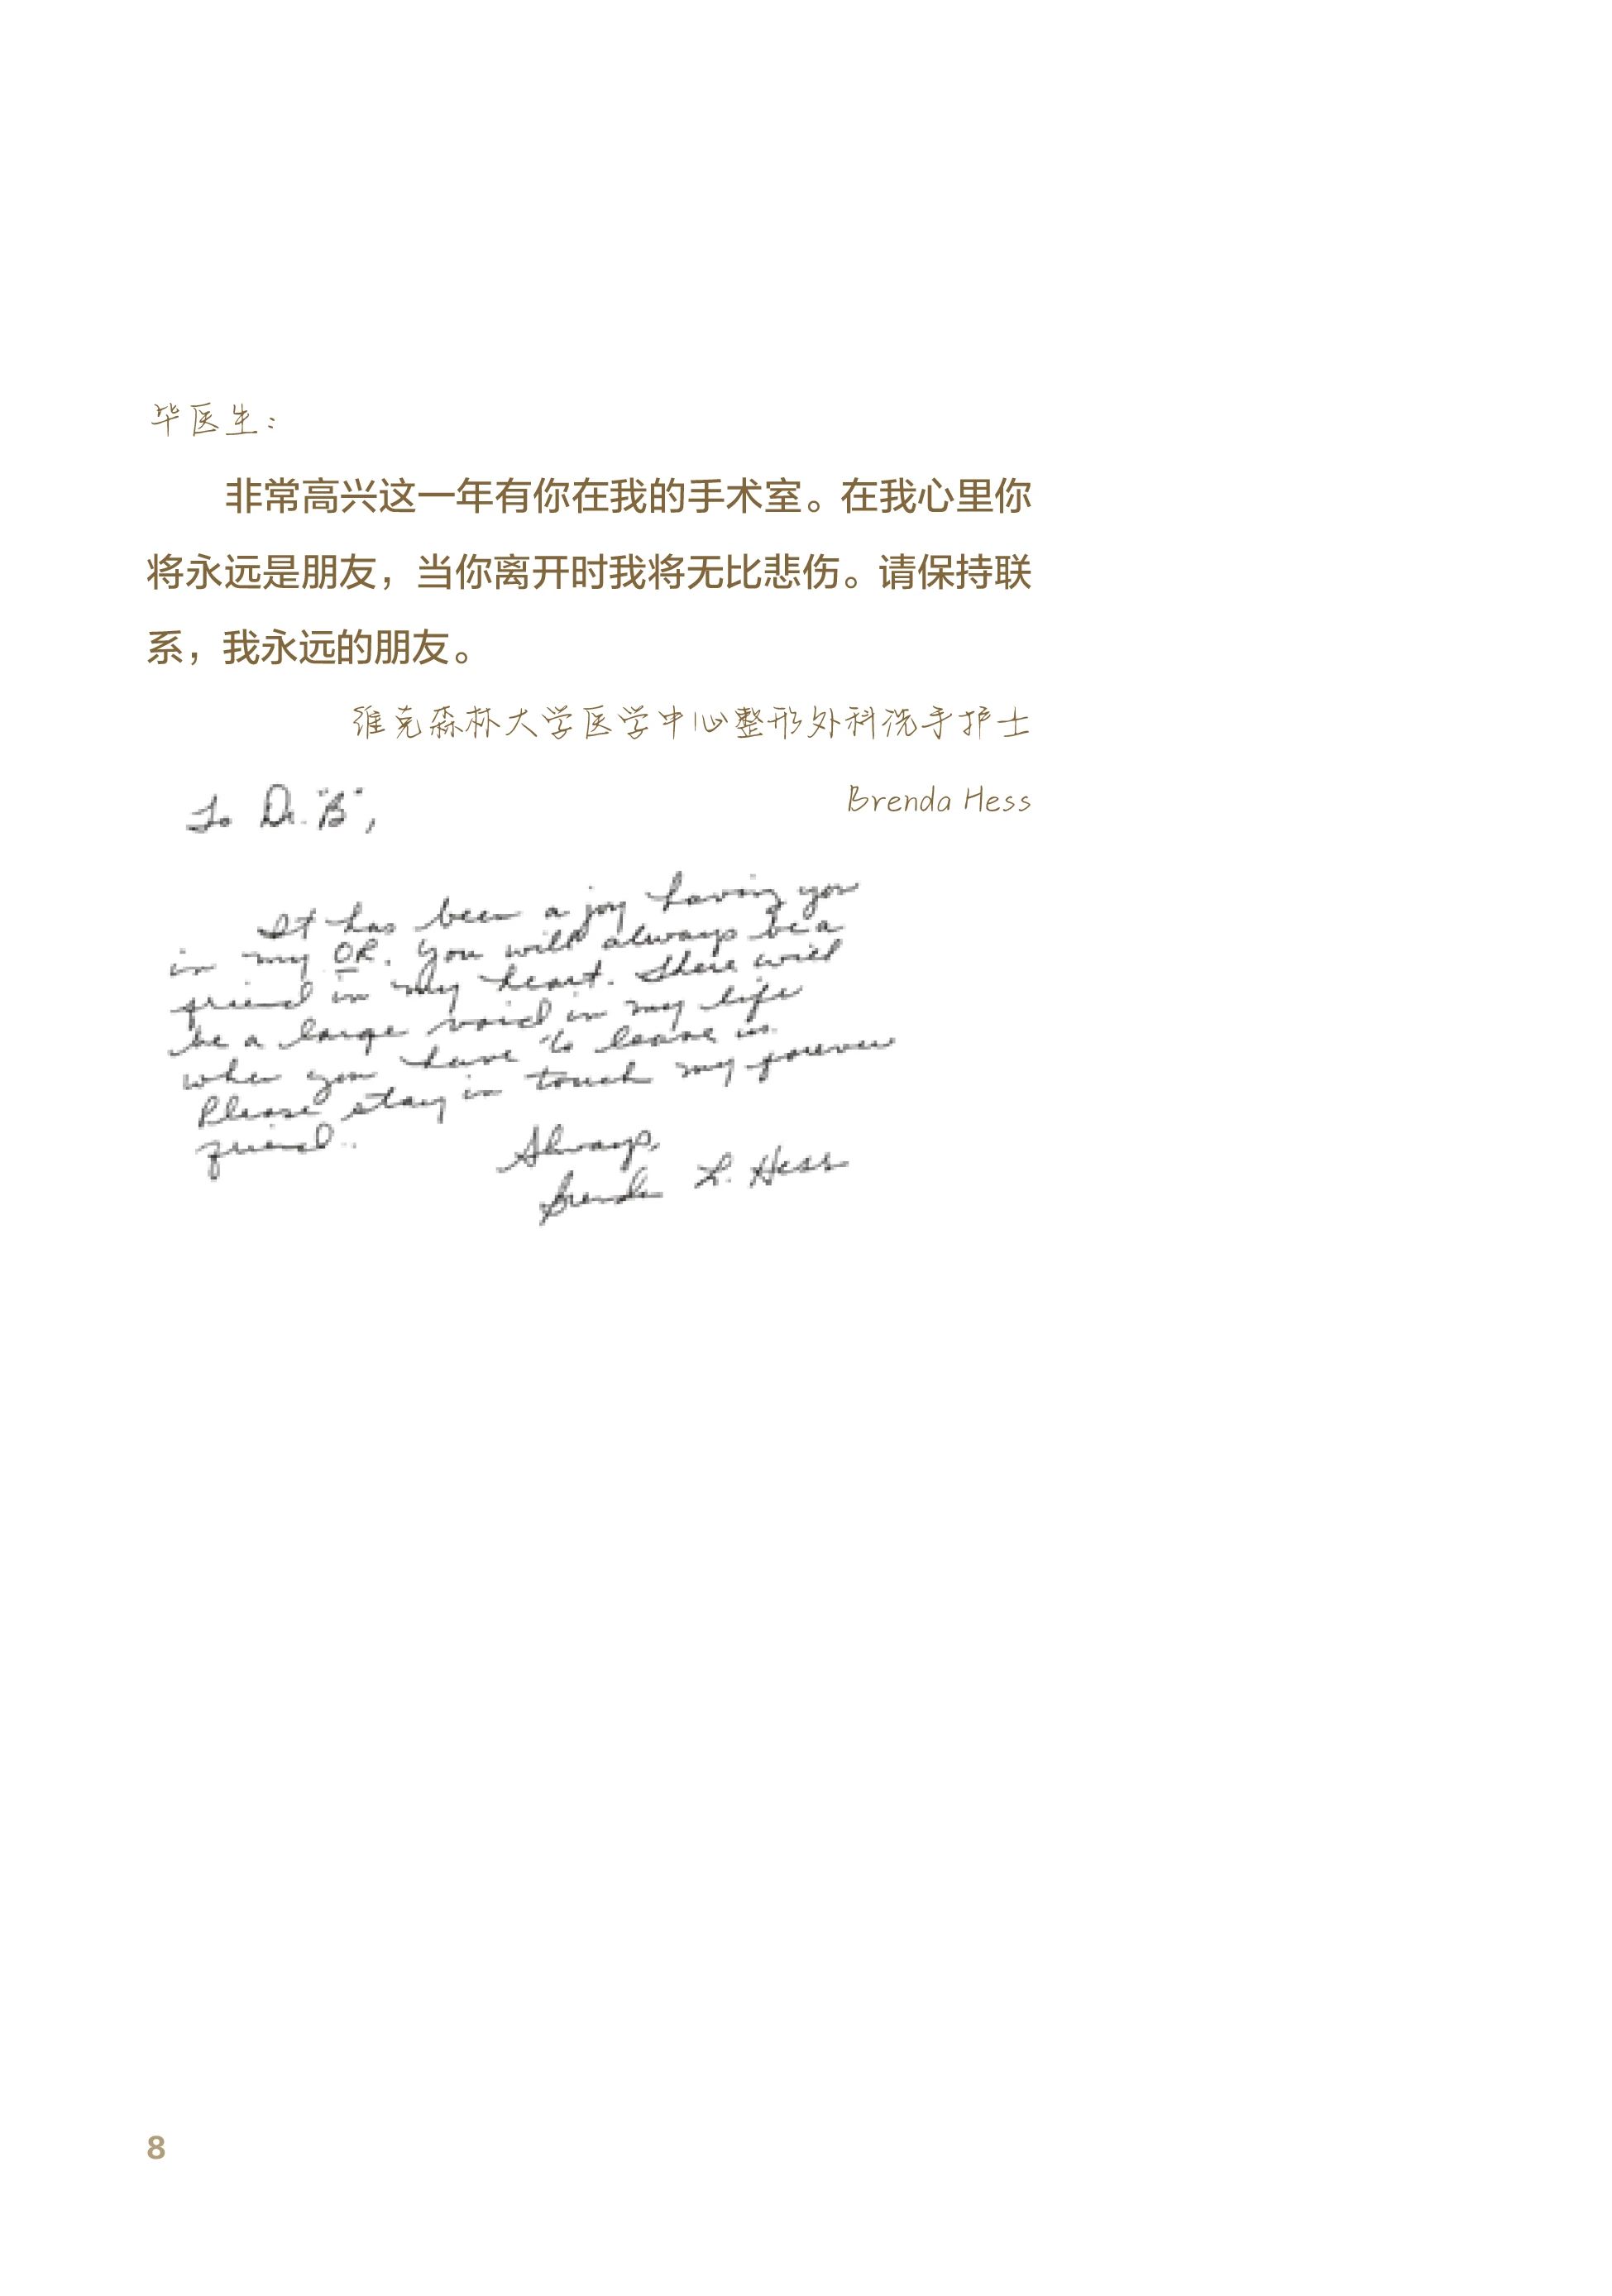 毕医生：
非常高兴这一年有你在我的手术室。在我心里你
将永远是朋友，当你离开时我将无比悲伤。请保持联
系，我永远的朋友。
维克森林大学医学中心整形外科洗手护士
Brenda Hess
To Dr. "B",
It has been a joy having you
in my OR. You will always be a
friend in my heart. There will
be a large void in my life
when you have to leave us.
Please stay in touch my forever
friend..
Always,
Brenda L. Hess
8